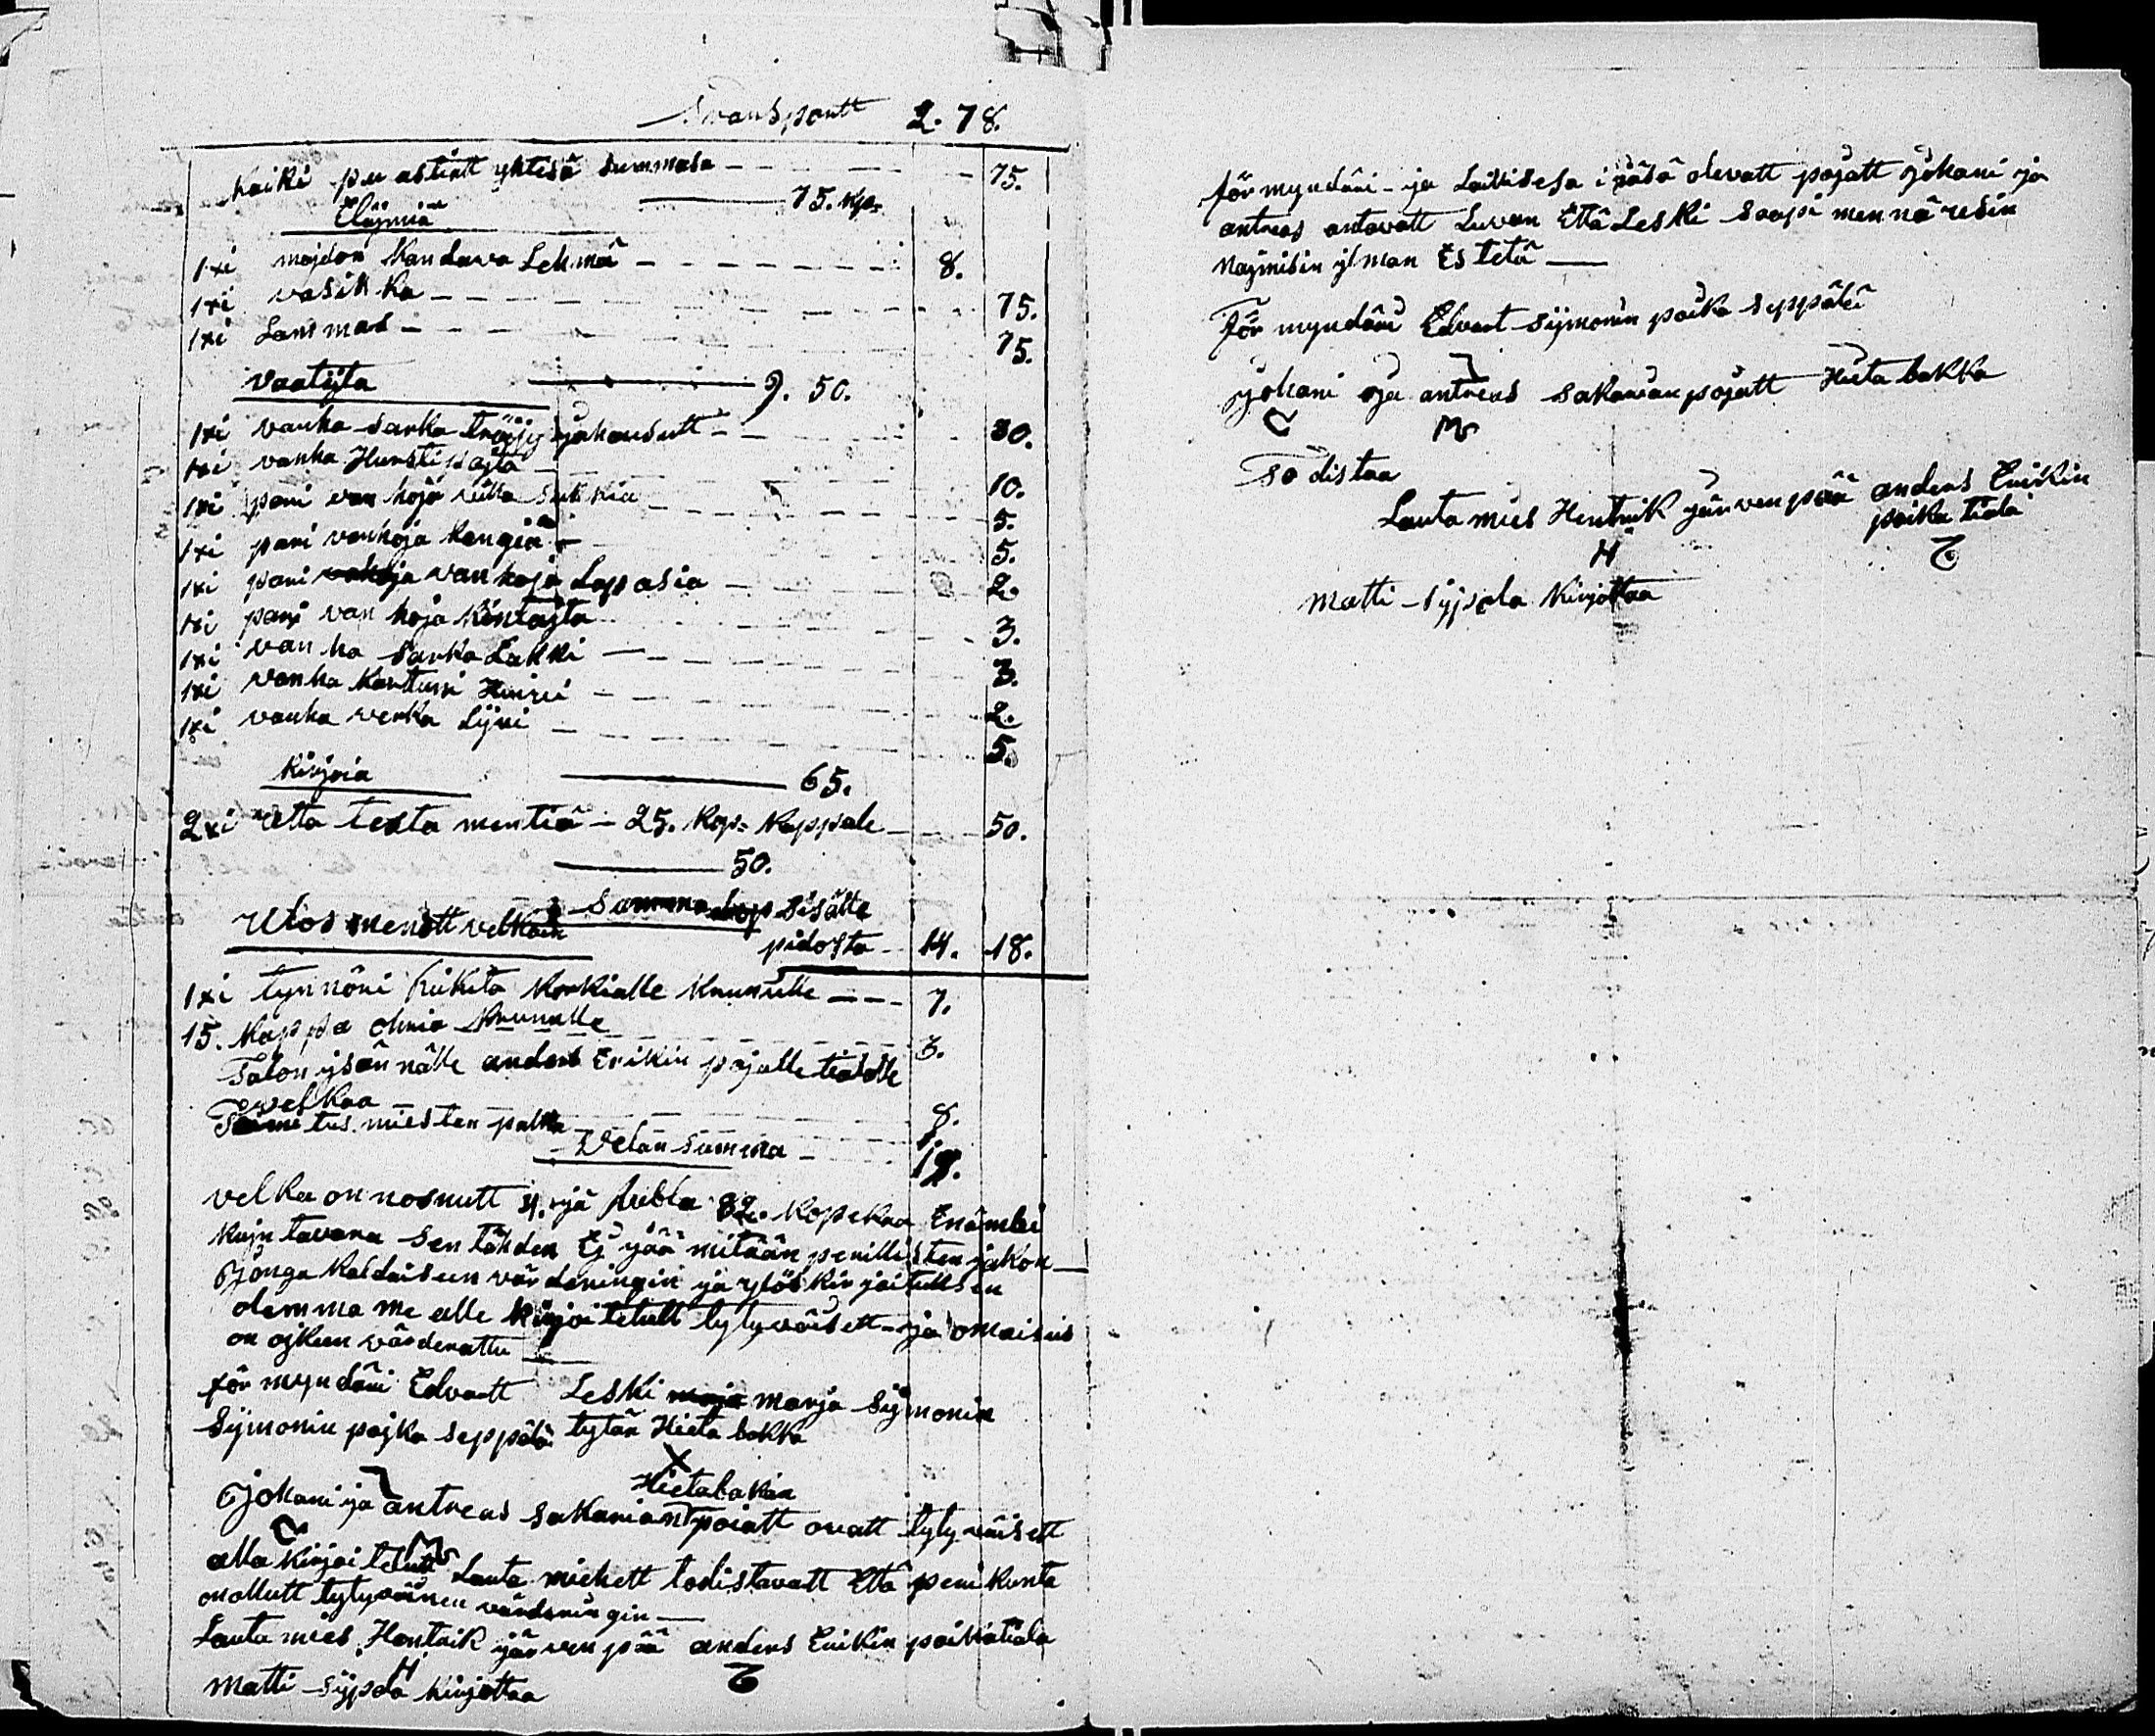 Transportt 2. 78.
Kaiki pu astiatt yhtesä summasa — 75.
75. Kp.
Eläymiä
1xi majdon kandava Lehmä — 8.
1xi vasikka — 75.
1xi Lammas — 75.
9. 50.
Vaatijta
1xi vanha sarka tröjy ja housutt — 30.
1xi vanha Hursti pajta — 10.
1xi pari van hoja villa sukkia — 5.
1xi pari vanhoja kengiä — 5.
1xi pari van hoja Lapasia — 2.
1xi pari van hoja Kintajta — 3.
1xi van ha sarka Lakki — 3.
1xi vanha kartuni Huivi — 2.
1xi vanha verka Lijvi — 5.
Kirjoia 65.
2xi utta testa mentiä — 25. Kop. Kappale — 50.
50.
Summa sisälle
pidosta — 14. 18.
Ulos menott velkoin
1xi tynnöri Rukita Korkialle Kruunulle — 7.
15. Kappa ohria Kruunulle — 3.
Talon ysännälle anders Erikin pojalle tialalle
velkaa — 8.
Toimitus miesten palkka — 1.
Velan summa — 19.
velka on nosnutt 4. jä rubla 82. kopekaa Enämbi
kujn tavara sen tähden Ej jää mitään perillisten jakon —
jonga kaldaiseen värderingin ja ylöskirjoituksen
olemma me alle kirjoitetutt tytyväisett ja omaisus
on ojkeen värderattu —
för myndäri Edvartt Leski marja Sijmonin
Sijmonin pojka seppälä tytär Hieta bakka
X
Hietabakan
Johani ja antreas sakarian pojatt ovatt tytyväisett
alla kirjoitetutt Lauta miehett todistavatt Että peri kunta
on ollutt tytyväinen värderingin —
Lauta mies Hentrik järven pää anders Erikin poika tiala
H
Matti Sijpola kirjottaa
för myndäri ja Laillisesa ijäsä olevatt pojatt johani ja
antreas antavatt Luvan Että Leski saapi mennä uusin
Najmisin ylman Estetä —
För myndäri Edvart Sijmonin poika seppälä
Johani ja antreas sakarian pojatt Hieta bakka
To distaa
Lauta mies Hentrik järven pää anders Erikin
poika tiala
H
Matti Sijpola kirjottaa